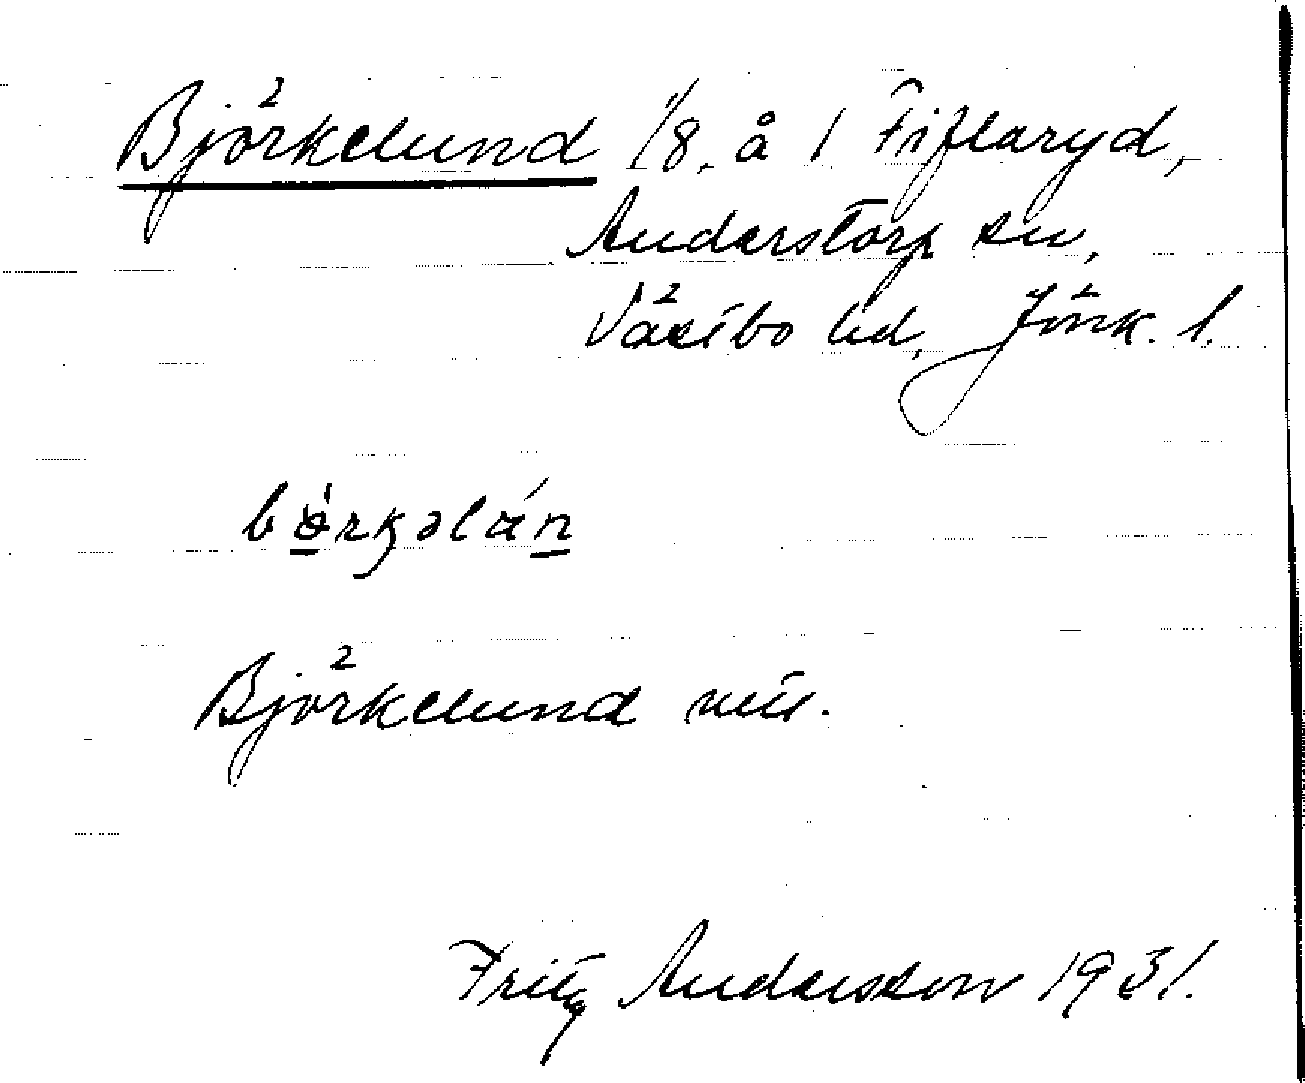 Björkelund 1/8, å 1 Fiflaryd,
Anderstorp sn,
Västbo hd, Jönk. l.
Björkelund
Fritz Andersson 1931.